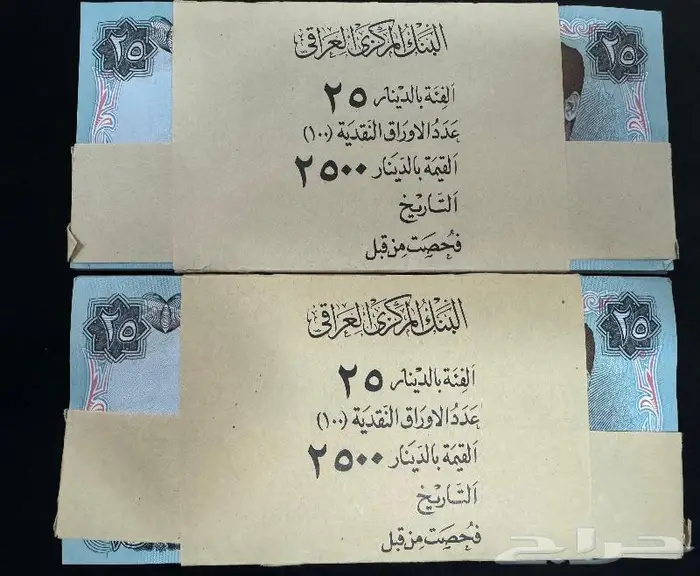 ٢٥
٢٥
البنك المركزي العراقي
الفئة بالدينار ٢٥
عدد الاوراق النقدية (١٠٠)
القيمة بالدينار ٢٥٠٠
التاريخ
فحصت من قبل
٢٥
٢٥
البنك المركزي العراقي
الفئة بالدينار ٢٥
عدد الاوراق النقدية (١٠٠)
القيمة بالدينار ٢٥٠٠
التاريخ
فحصت من قبل
حراج